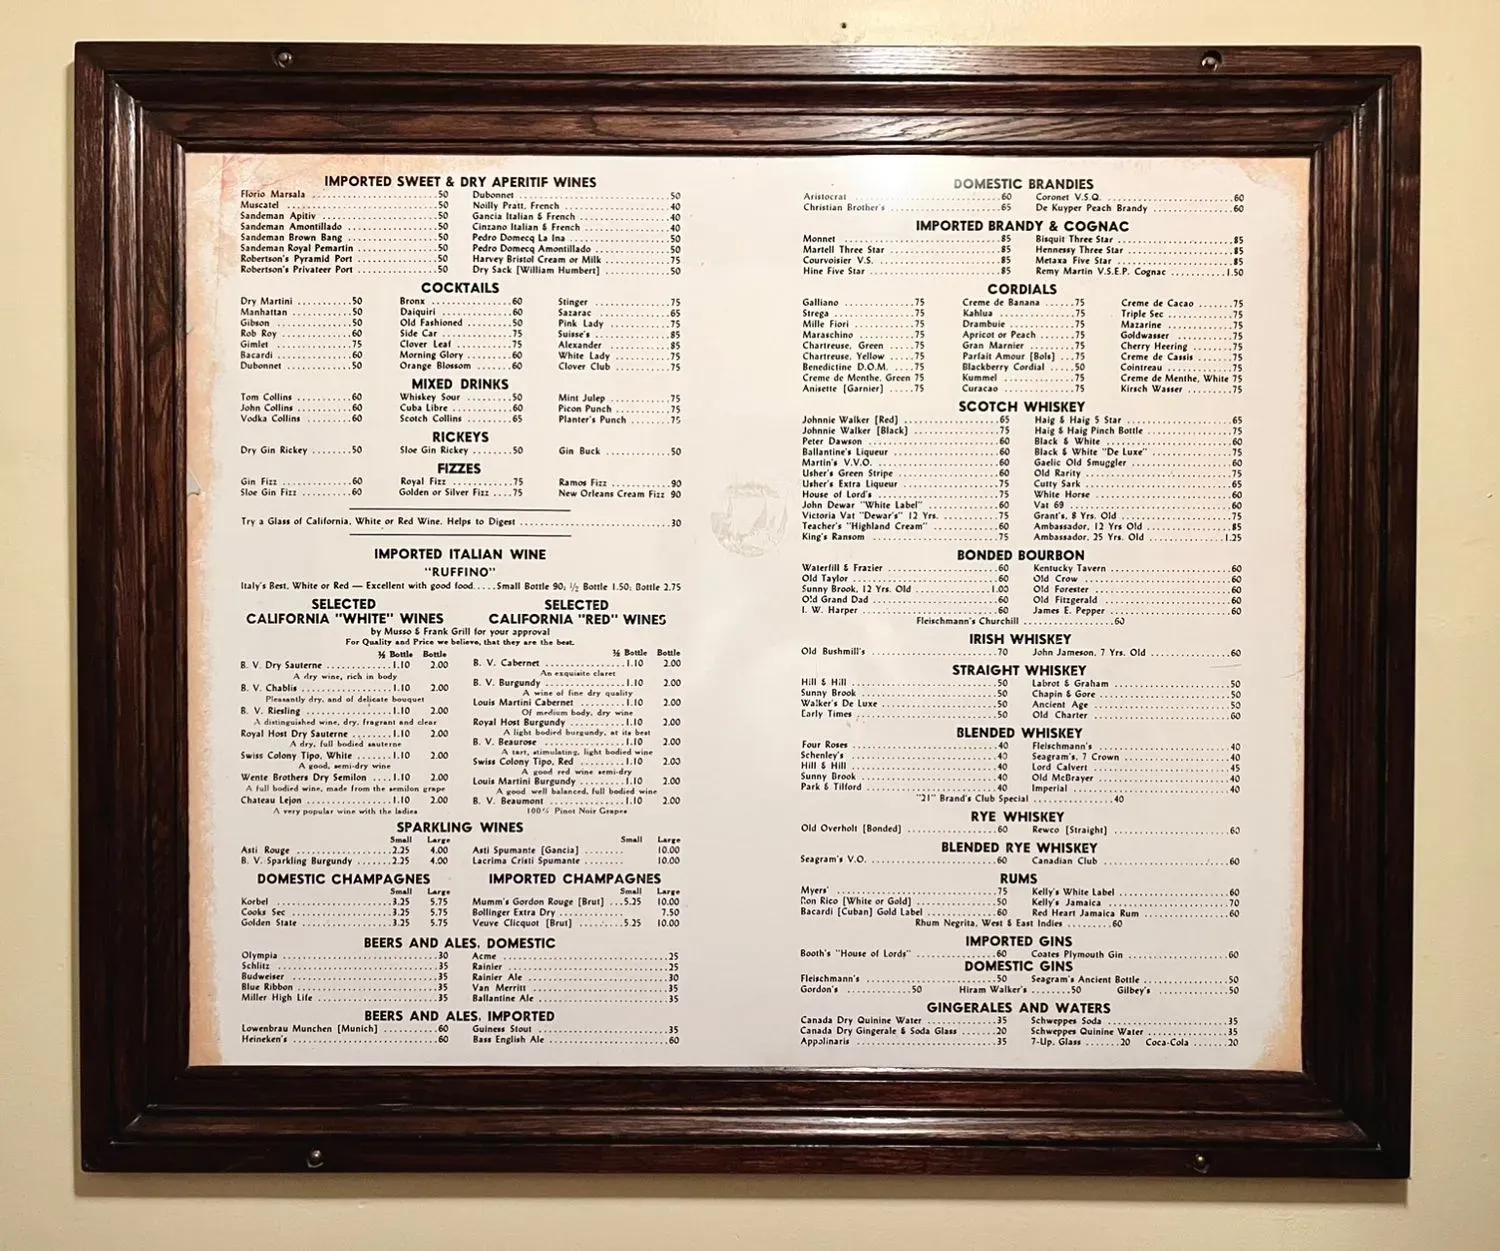 IMPORTED SWEET & DRY APERITIF WINES
Florio Marsala ..........50 Dubonnet ..........50
Muscatel ..........50 Noilly Pratt, French ..........40
Sandeman Apitiv ..........50 Gancia Italian & French ..........40
Sandeman Amontillado ..........50 Cinzano Italian & French ..........40
Sandeman Brown Bang ..........50 Pedro Domecq La Ina ..........50
Sandeman Royal Pemartin ..........50 Pedro Domecq Amontillado ..........50
Robertson's Pyramid Port ..........50 Harvey Bristol Cream or Milk ..........75
Robertson's Privateer Port ..........50 Dry Sack [William Humbert] ..........50
COCKTAILS
Dry Martini ..........50 Bronx ..........60 Stinger ..........75
Manhattan ..........50 Daiquiri ..........60 Sazarac ..........65
Gibson ..........50 Old Fashioned ..........50 Pink Lady ..........75
Rob Roy ..........60 Side Car ..........75 Suisse's ..........85
Gimlet ..........75 Clover Leaf ..........75 Alexander ..........85
Bacardi ..........60 Morning Glory ..........60 White Lady ..........75
Dubonnet ..........50 Orange Blossom ..........60 Clover Club ..........75
MIXED DRINKS
Tom Collins ..........60 Whiskey Sour ..........50 Mint Julep ..........75
John Collins ..........60 Cuba Libre ..........60 Picon Punch ..........75
Vodka Collins ..........60 Scotch Collins ..........65 Planter's Punch ..........75
RICKEYS
Dry Gin Rickey ..........50 Sloe Gin Rickey ..........50 Gin Buck ..........50
FIZZES
Gin Fizz ..........60 Royal Fizz ..........75 Ramos Fizz ..........90
Sloe Gin Fizz ..........60 Golden or Silver Fizz ....75 New Orleans Cream Fizz 90
Try a Glass of California, White or Red Wine, Helps to Digest ..........30
IMPORTED ITALIAN WINE
"RUFFINO"
Italy's Best, White or Red — Excellent with good food.....Small Bottle 90; ½ Bottle 1.50; Bottle 2.75
SELECTED CALIFORNIA "WHITE" WINES
SELECTED CALIFORNIA "RED" WINES
by Musso & Frank Grill for your approval
For Quality and Price we believe, that they are the best.
½ Bottle Bottle
B. V. Dry Sauterne ..........1.10 2.00
A dry wine, rich in body
B. V. Chablis ..........1.10 2.00
Pleasantly dry, and of delicate bouquet
B. V. Riesling ..........1.10 2.00
A distinguished wine, dry, fragrant and clear
Royal Host Dry Sauterne ..........1.10 2.00
A dry, full bodied sauterne
Swiss Colony Tipo, White ..........1.10 2.00
A good, semi-dry wine
Wente Brothers Dry Semilon ....1.10 2.00
A full bodied wine, made from the semilon grape
Chateau Lejon ..........1.10 2.00
A very popular wine with the ladies
½ Bottle Bottle
B. V. Cabernet ..........1.10 2.00
An exquisite claret
B. V. Burgundy ..........1.10 2.00
A wine of fine dry quality
Louis Martini Cabernet ..........1.10 2.00
Of medium body, dry wine
Royal Host Burgundy ..........1.10 2.00
A light bodied burgundy, at its best
B. V. Beaurose ..........1.10 2.00
A tart, stimulating, light bodied wine
Swiss Colony Tipo, Red ..........1.10 2.00
A good red wine semi-dry
Louis Martini Burgundy ..........1.10 2.00
A good well balanced, full bodied wine
B. V. Beaumont ..........1.10 2.00
100% Pinot Noir Grapes
SPARKLING WINES
Small Large Small Large
Asti Rouge ..........2.25 4.00 Asti Spumante [Gancia] ........ 10.00
B. V. Sparkling Burgundy .......2.25 4.00 Lacrima Cristi Spumante ........ 10.00
DOMESTIC CHAMPAGNES
Small Large
Korbel ..........3.25 5.75
Cooks Sec ..........3.25 5.75
Golden State ..........3.25 5.75
IMPORTED CHAMPAGNES
Small Large
Mumm's Gordon Rouge [Brut] ...5.25 10.00
Bollinger Extra Dry .......... 7.50
Veuve Clicquot [Brut] ..........5.25 10.00
BEERS AND ALES, DOMESTIC
Olympia ..........30 Acme ..........25
Schlitz ..........35 Rainier ..........25
Budweiser ..........35 Rainier Ale ..........30
Blue Ribbon ..........35 Van Merritt ..........35
Miller High Life ..........35 Ballantine Ale ..........35
BEERS AND ALES, IMPORTED
Lowenbrau Munchen [Munich] ..........60 Guiness Stout ..........35
Heineken's ..........60 Bass English Ale ..........60
DOMESTIC BRANDIES
Aristocrat ..........60 Coronet V.S.Q. ..........60
Christian Brother's ..........65 De Kuyper Peach Brandy ..........60
IMPORTED BRANDY & COGNAC
Monnet ..........85 Bisquit Three Star ..........85
Martell Three Star ..........85 Hennessy Three Star ..........85
Courvoisier V.S. ..........85 Metaxa Five Star ..........85
Hine Five Star ..........85 Remy Martin V.S.E.P. Cognac ..........1.50
CORDIALS
Galliano ..........75 Creme de Banana ......75 Creme de Cacao .......75
Strega ..........75 Kahlua ..........75 Triple Sec ..........75
Mille Fiori ..........75 Drambuie ..........75 Mazarine ..........75
Maraschino ..........75 Apricot or Peach ......75 Goldwasser ..........75
Chartreuse, Green .....75 Gran Marnier ..........75 Cherry Heering .......75
Chartreuse, Yellow .....75 Parfait Amour [Bols] ....75 Creme de Cassis ......75
Benedictine D.O.M. ....75 Blackberry Cordial .....50 Cointreau ..........75
Creme de Menthe, Green 75 Kummel ..........75 Creme de Menthe, White 75
Anisette [Garnier] .....75 Curacao ..........75 Kirsch Wasser ........75
SCOTCH WHISKEY
Johnnie Walker [Red] ..........65 Haig & Haig 5 Star ..........65
Johnnie Walker [Black] ..........75 Haig & Haig Pinch Bottle ..........75
Peter Dawson ..........60 Black & White ..........60
Ballantine's Liqueur ..........60 Black & White "De Luxe" ..........75
Martin's V.V.O. ..........60 Gaelic Old Smuggler ..........60
Usher's Green Stripe ..........60 Old Rarity ..........75
Usher's Extra Liqueur ..........75 Cutty Sark ..........65
House of Lord's ..........75 White Horse ..........60
John Dewar "White Label" ..........60 Vat 69 ..........60
Victoria Vat "Dewar's" 12 Yrs. ..........75 Grant's, 8 Yrs. Old ..........75
Teacher's "Highland Cream" ..........60 Ambassador, 12 Yrs Old ..........85
King's Ransom ..........75 Ambassador, 25 Yrs. Old ..........1.25
BONDED BOURBON
Waterfill & Frazier ..........60 Kentucky Tavern ..........60
Old Taylor ..........60 Old Crow ..........60
Sunny Brook, 12 Yrs. Old ..........1.00 Old Forester ..........60
Old Grand Dad ..........60 Old Fitzgerald ..........60
I. W. Harper ..........60 James E. Pepper ..........60
Fleischmann's Churchill ..........60
IRISH WHISKEY
Old Bushmill's ..........70 John Jameson, 7 Yrs. Old ..........60
STRAIGHT WHISKEY
Hill & Hill ..........50 Labrot & Graham ..........50
Sunny Brook ..........50 Chapin & Gore ..........50
Walker's De Luxe ..........50 Ancient Age ..........50
Early Times ..........50 Old Charter ..........60
BLENDED WHISKEY
Four Roses ..........40 Fleischmann's ..........40
Schenley's ..........40 Seagram's, 7 Crown ..........40
Hill & Hill ..........40 Lord Calvert ..........45
Sunny Brook ..........40 Old McBrayer ..........40
Park & Tilford ..........40 Imperial ..........40
"21" Brand's Club Special ..........40
RYE WHISKEY
Old Overholt [Bonded] ..........60 Rewco [Straight] ..........60
BLENDED RYE WHISKEY
Seagram's V.O. ..........60 Canadian Club ..........60
RUMS
Myers' ..........75 Kelly's White Label ..........60
Ron Rico [White or Gold] ..........50 Kelly's Jamaica ..........70
Bacardi [Cuban] Gold Label ..........60 Red Heart Jamaica Rum ..........60
Rhum Negrita, West & East Indies ..........60
IMPORTED GINS
Booth's "House of Lords" ..........60 Coates Plymouth Gin ..........60
DOMESTIC GINS
Fleischmann's ..........50 Seagram's Ancient Bottle ..........50
Gordon's ..........50 Hiram Walker's ........50 Gilbey's ..........50
GINGERALES AND WATERS
Canada Dry Quinine Water ..........35 Schweppes Soda ..........35
Canada Dry Gingerale & Soda Glass .......20 Schweppes Quinine Water ..........35
Appolinaris ..........35 7-Up, Glass .......20 Coca-Cola .......20